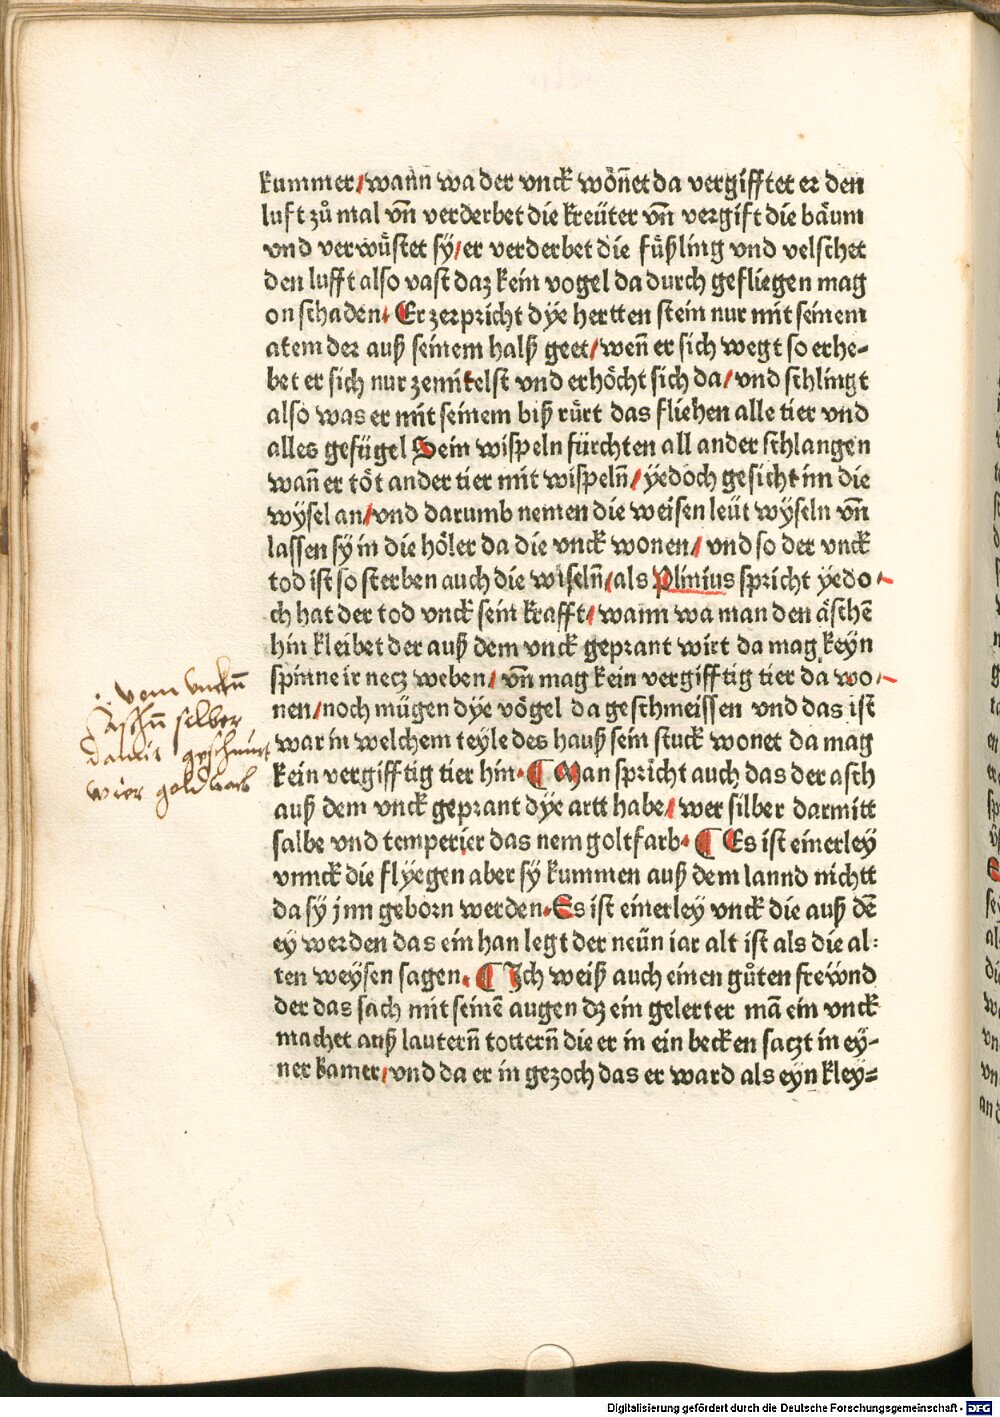 kummer/wann wa der vnck wõnet da vergifftet er den
lufft zů mal vñ verderbet die kreüter vñ vergift die bäum
vnd verwüstet sÿ/er verderbet die füßling vnd velschet
den lufft also vast daz kein vogel da durch gefliegen mag
on schaden. Er zerpricht dÿe hertten stein nur mit seinem
atem der auß seinem halß geet/weñ er sich wegt so erhe-
bet er sich nur zemitelst vnd erhöcht sich da/vnd schlingt
also was er mit seinem biß rürt das fliehen alle tier vnd
alles gefügel Sein wispeln fürchten all ander schlangen
wañ er töt ander tier mit wispelñ/ÿedoch gesicht in die
wÿsel an/vnd darumb nemen die weisen leüt wÿseln vñ
lassen sÿ in die höler da die vnck wonen/vnd so der vnck
tod ist so sterben auch die wiselñ/als Plinius spricht ÿedo-
ch hat der tod vnck sein krafft/wann wa man den äschẽ
hin kleibet der auß dem vnck geprant wirt da mag keyn
spinne ir necz weben/vñ mag kein vergifftig tier da wo-
nen/noch mügen dÿe vögel da geschmeissen vnd das ist
war in welchem teyle des hauß sein stuck wonet da mag
kein vergifftig tier hin. ¶ Man spricht auch das der asch
auß dem vnck geprant dÿe artt habe/wer silber darmitt
salbe vnd temperier das nem goltfarb. ¶ Es ist einerley
vnnck die flÿegen aber sÿ kummen auß dem lannd nichtt
da sÿ jnn geborn werden. Es ist einerley vnck die auß dẽ
ey werden das ein han legt der neün iar alt ist als die al:
ten weÿsen sagen. ¶ Ich weiß auch einen gůten frewnd
der das sach mit seinẽ augen dz ein gelerter mã ein vnck
machet auß lauterñ totterñ die er in ein becken saczt in eÿ-
ner kamer/vnd da er in gezoch das er ward als eÿn kleÿ-
vom vnckñ
Aschñ silber
damit geschmirt